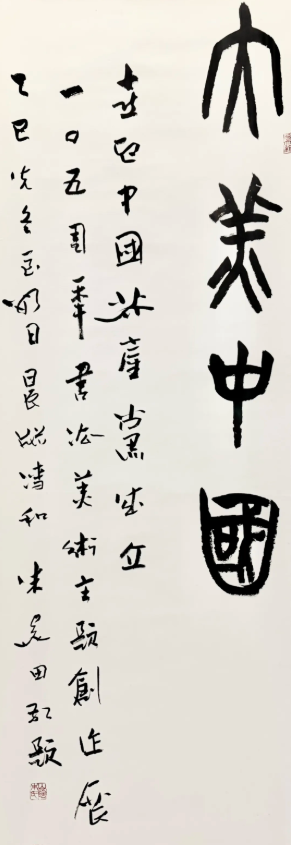 大美中國
喜迎中國共產黨成立
一〇五周年書法美術主題創作展
乙巳冬至明日晨 和 田 題